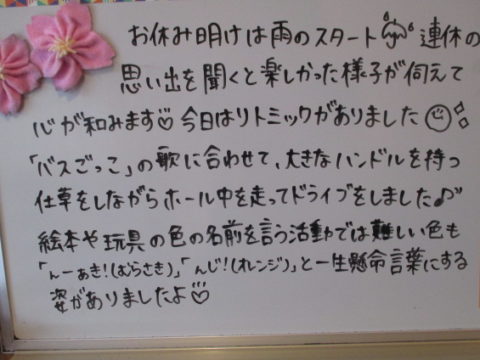 お休み明けは雨のスタート☂連休の
思い出を聞くと楽しかった様子が伺えて
心が和みます♡今日はリトミックがありました☺
「バスごっこ」の歌に合わせて、大きなハンドルを持つ
仕草をしながらホール中を走ってドライブをしました♪
絵本や玩具の色の名前を言う活動では難しい色も
「んーぁき!(むらさき)」、「んじ!(オレンジ)」、と一生懸命言葉にする
姿がありましたよ♡